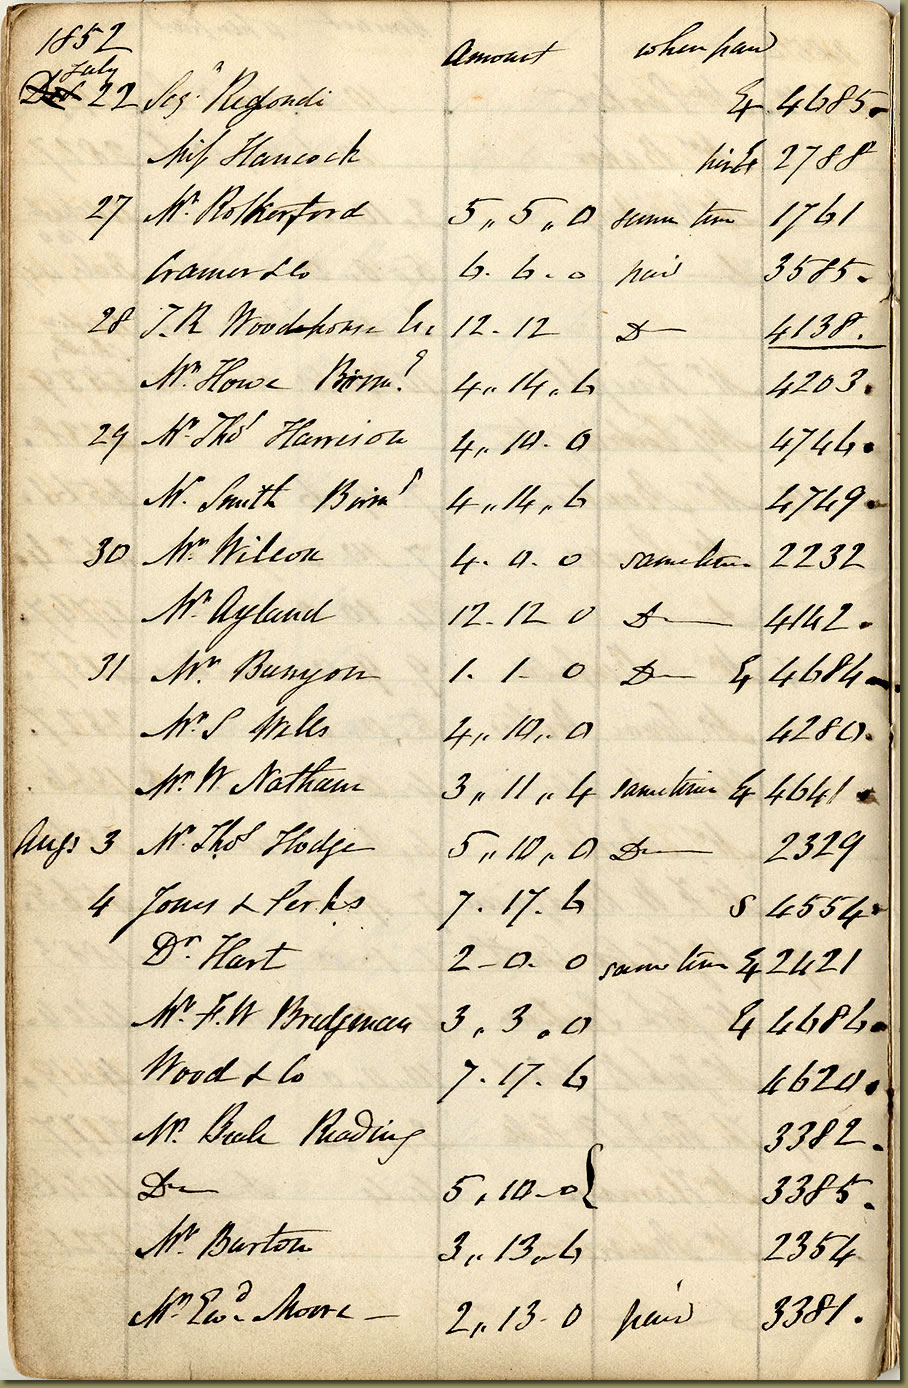 1852
Amount when paid
July
22 Sigr Regondi E4 4685.
Miss Hancock hire E4 2788
27 Mr Rotherford 5,,5,,0 same time 1761
Cramer & Co 6. 6. 0 paid 3585.
28 J.R Woodehouse 12. 12 Do 4138.
Mr Howe Birmm 4,,14,,6 4203.
29 Mr Thos Harrison 4,,10. 0 4746.
Mr Smith Birmm 4,,14,,6 4749.
30 Mr Wilson 4. 0. 0 same time 2232
Mr Ayland 12. 12 0 Do 4142.
31 Mr Bunyon 1. 1. 0 Do E4 4684
Mr S Wells 4,,10,,0 4280.
Mr W Nathan 3,,11,,4 sametime E4 4641.
Augs 3 Mr Thos Hodge 5,,10,,0 Do 2329
4 Jones & Perkes 7. 17. 6 S 4554.
Dr Hart 2-0. 0 same time E4 2421
Mr F.W Bridgman 3,,3,,0 E4 4686.
Wood & Co 7. 17. 6 4620.
Mr Beale Reading 3382.
Do 5,,10-0 } 3385.
Mr Burton 3,,13,,6 2354
Mr Ewd Moore - 2,,13-0 paid 3381.